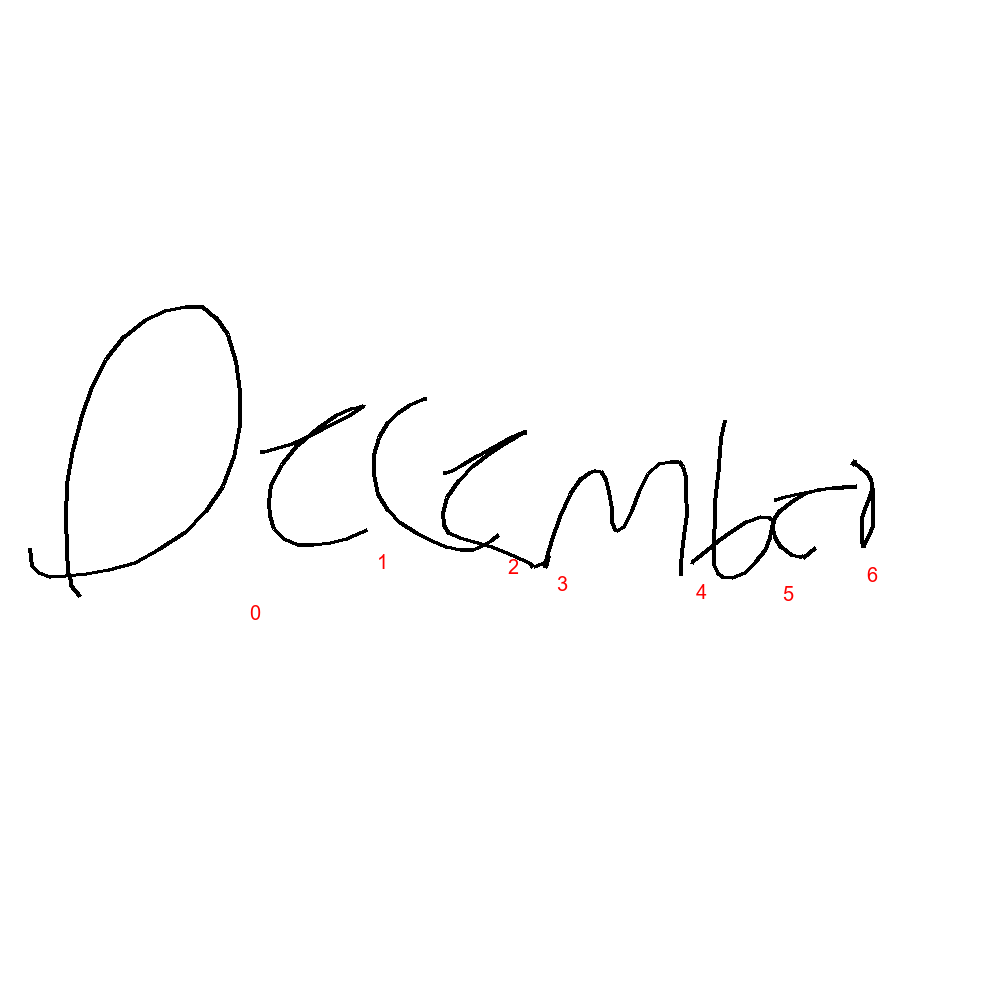 December
0 1 2 3 4 5 6